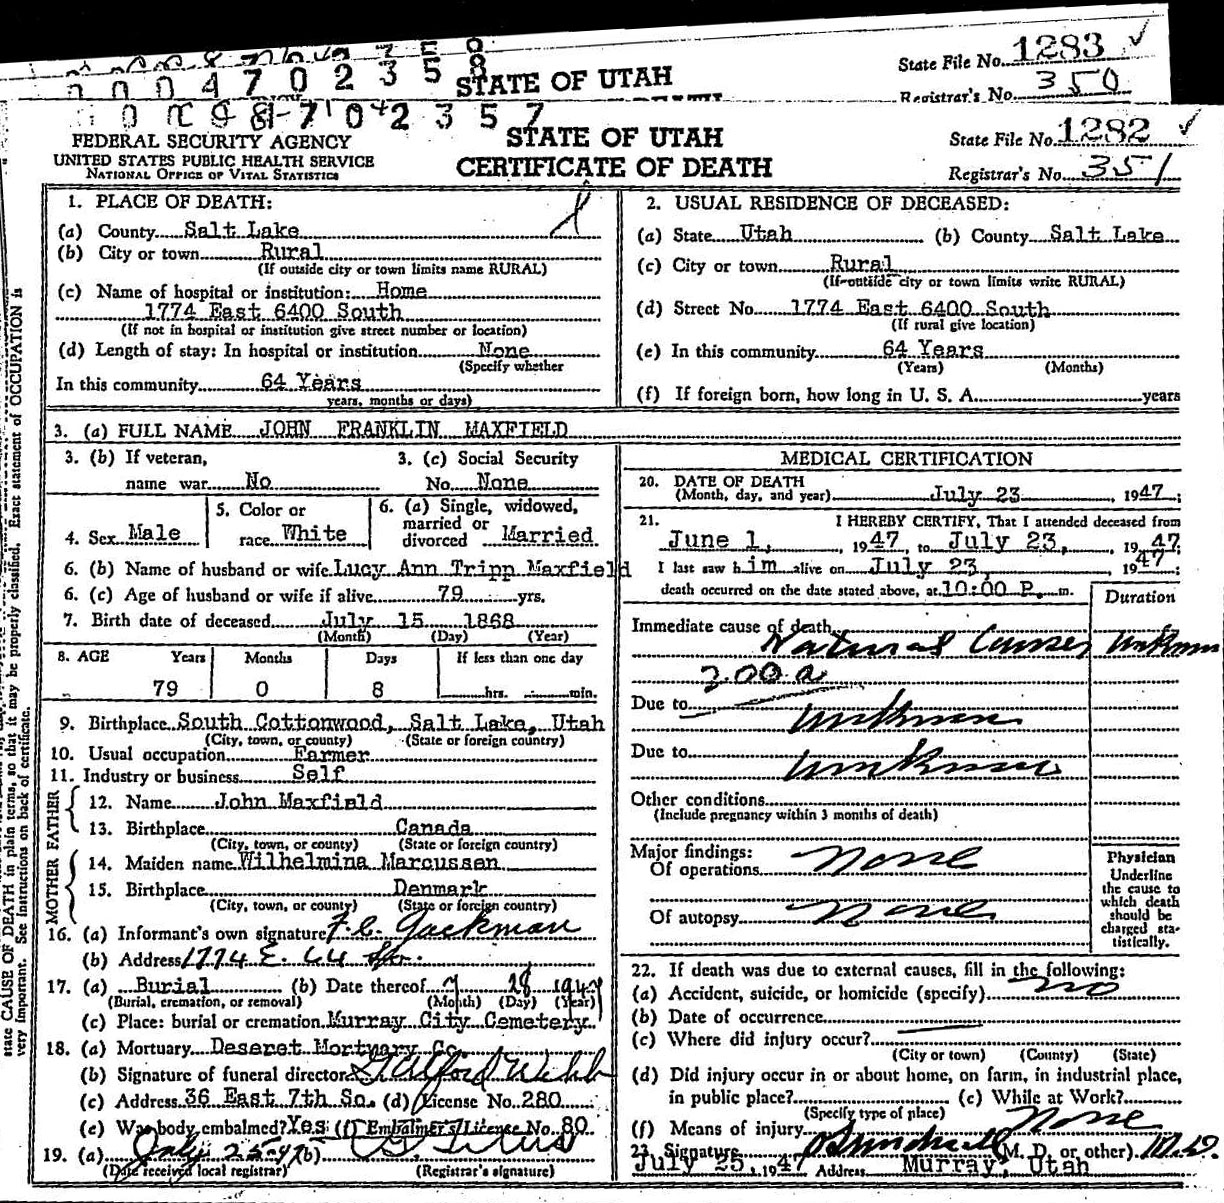 0 0 0 4 7 0 2 3 5 8
STATE OF UTAH
State File No. 1283 ✓
Registrar's No. 350
7 0 2 3 5 7
FEDERAL SECURITY AGENCY
UNITED STATES PUBLIC HEALTH SERVICE
NATIONAL OFFICE OF VITAL STATISTICS
STATE OF UTAH
CERTIFICATE OF DEATH
State File No. 1282 ✓
Registrar's No. 351
state CAUSE OF DEATH in plain terms, so that it may be properly classified. Exact statement of OCCUPATION is
very important. See instructions on back of certificate.
1. PLACE OF DEATH:
(a) County Salt Lake
(b) City or town Rural
(If outside city or town limits name RURAL)
(c) Name of hospital or institution: Home
1774 East 6400 South
(If not in hospital or institution give street number or location)
(d) Length of stay: In hospital or institution None
(Specify whether
In this community 64 Years
years, months or days)
2. USUAL RESIDENCE OF DECEASED:
(a) State Utah (b) County Salt Lake
(c) City or town Rural
(If outside city or town limits write RURAL)
(d) Street No. 1774 East 6400 South
(If rural give location)
(e) In this community 64 Years
(Years) (Months)
(f) If foreign born, how long in U. S. A. years
3. (a) FULL NAME JOHN FRANKLIN MAXFIELD
3. (b) If veteran,
name war No
3. (c) Social Security
No. None
4. Sex Male
5. Color or
race White
6. (a) Single, widowed,
married or
divorced Married
6. (b) Name of husband or wife Lucy Ann Tripp Maxfield
6. (c) Age of husband or wife if alive 79 yrs.
7. Birth date of deceased July 15 1868
(Month) (Day) (Year)
8. AGE Years Months Days If less than one day
79 0 8 hrs. min.
9. Birthplace South Cottonwood, Salt Lake, Utah
(City, town, or county) (State or foreign country)
10. Usual occupation Farmer
11. Industry or business Self
FATHER
12. Name John Maxfield
13. Birthplace Canada
(City, town, or county) (State or foreign country)
MOTHER
14. Maiden name Wilhelmina Marcussen
15. Birthplace Denmark
(City, town, or county) (State or foreign country)
16. (a) Informant's own signature F.C. Jackman
(b) Address 1774 E. 64 So.
17. (a) Burial (b) Date thereof 7 28 1947
(Burial, cremation, or removal) (Month) (Day) (Year)
(c) Place: burial or cremation Murray City Cemetery
18. (a) Mortuary Deseret Mortuary Co.
(b) Signature of funeral director Alford Webb
(c) Address 36 East 7th So. (d) License No. 280
(e) Was body embalmed? Yes (f) Embalmer's License No. 80
19. (a) July 25-47 (b) Titus
(Date received local registrar) (Registrar's signature)
MEDICAL CERTIFICATION
20. DATE OF DEATH
(Month, day, and year) July 23, 1947;
21. I HEREBY CERTIFY, That I attended deceased from
June 1, 1947, to July 23, 1947;
I last saw him alive on July 23, 1947;
death occurred on the date stated above, at 10:00 P. m.
Duration
Immediate cause of death
Natural Causes Unknown
200a
Due to
unknown
Due to
unknown
Other conditions
(Include pregnancy within 3 months of death)
Major findings:
Of operations None
Of autopsy None
Physician
Underline
the cause to
which death
should be
charged sta-
tistically.
22. If death was due to external causes, fill in the following:
(a) Accident, suicide, or homicide (specify) no
(b) Date of occurrence
(c) Where did injury occur?
(City or town) (County) (State)
(d) Did injury occur in or about home, on farm, in industrial place,
in public place? (e) While at Work?
(Specify type of place)
(f) Means of injury None
23. Signature (M. D. or other) M.D.
July 25, 1947 Address Murray, Utah